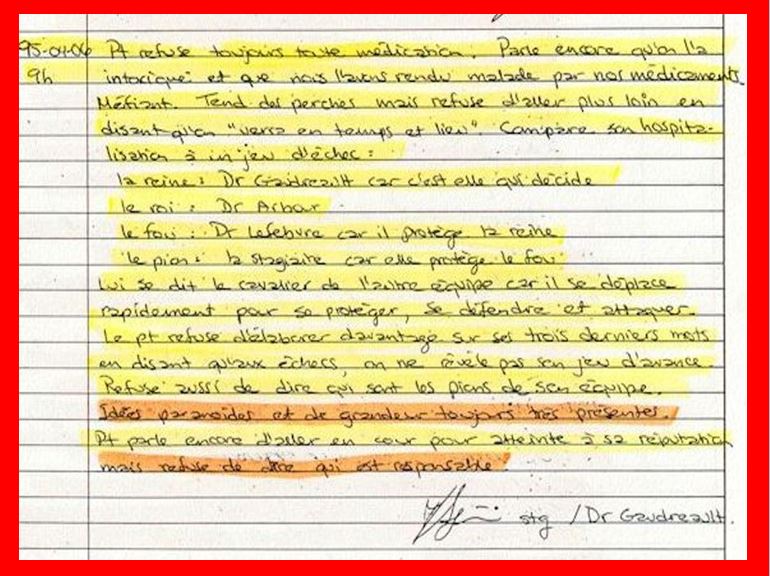 95-01-06 Pt refuse toujours toute médication. Parle encore qu'on l'a
9h intoxiqué et que nous l'avons rendu malade par nos médicaments.
Méfiant. Tend des perches mais refuse d'aller plus loin en
disant qu'on "verra en temps et lieu". Compare son hospita-
lisation à un jeu d'échec :
la reine : Dr Gaudreault car c'est elle qui décide
le roi : Dr Arbour
le fou : Dr Lefebvre car il protège la reine
le pion : la stagiaire car elle protège le fou
Lui se dit le cavalier de l'autre équipe car il se déplace
rapidement pour se protéger, se défendre et attaquer.
Le pt refuse d'élaborer davantage sur ses trois derniers mots
en disant qu'aux échecs, on ne révèle pas son jeu d'avance.
Refuse aussi de dire qui sont les pions de son équipe.
Idées paranoïdes et de grandeur toujours très présentes.
Pt parle encore d'aller en cour pour atteinte à sa réputation
mais refuse de dire qui est responsable
stg / Dr Gaudreault.